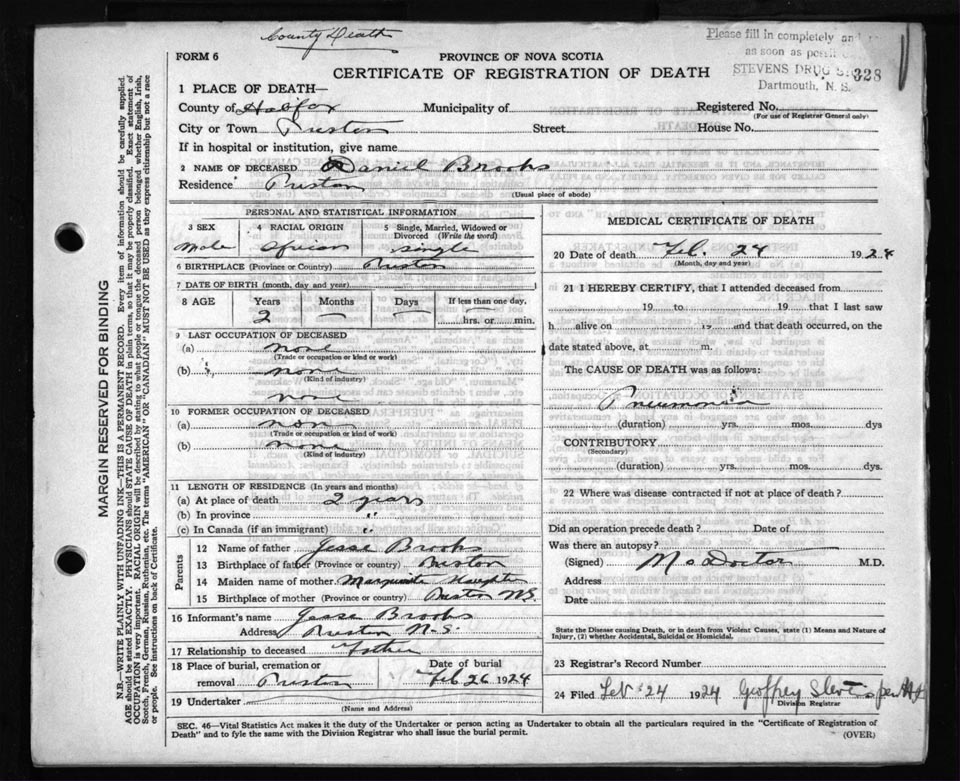 County Death
Please fill in completely and
as soon as
STEVENS DRUG
Dartmouth, N. S.
328
FORM 6
PROVINCE OF NOVA SCOTIA
CERTIFICATE OF REGISTRATION OF DEATH
1 PLACE OF DEATH—
County of Halifax Municipality of Registered No.
(For use of Registrar General only)
City or Town Preston Street House No.
If in hospital or institution, give name
2 NAME OF DECEASED Daniel Brooks
Residence Preston
(Usual place of abode)
PERSONAL AND STATISTICAL INFORMATION
3 SEX 4 RACIAL ORIGIN 5 Single, Married, Widowed or
Divorced (Write the word)
Male African Single
6 BIRTHPLACE (Province or Country) Preston
7 DATE OF BIRTH (month, day and year)
8 AGE Years Months Days If less than one day,
2 — — hrs. or min.
9 LAST OCCUPATION OF DECEASED
(a) none
(Trade or occupation or kind or work)
(b) none
(Kind of industry)
none
10 FORMER OCCUPATION OF DECEASED
(a) non
(Trade or occupation or kind or work)
(b) none
(Kind of industry)
11 LENGTH OF RESIDENCE (In years and months)
(a) At place of death 2 years
(b) In province "
(c) In Canada (if an immigrant) "
Parents
12 Name of father Jesse Brooks
13 Birthplace of father (Province or country) Preston
14 Maiden name of mother Marguerite
15 Birthplace of mother (Province or country) Preston N.S.
16 Informant's name Jesse Brooks
Address Preston N.S.
17 Relationship to deceased Father
18 Place of burial, cremation or Date of burial
removal Preston Feb 26 1924
19 Undertaker
(Name and Address)
MEDICAL CERTIFICATE OF DEATH
20 Date of death Feb. 24 1924
(Month, day and year)
21 I HEREBY CERTIFY, that I attended deceased from
19 to 19 that I last saw
h alive on 19 and that death occurred, on the
date stated above, at m.
The CAUSE OF DEATH was as follows:
Pneumonia
(duration) yrs. mos. dys
CONTRIBUTORY
(Secondary)
(duration) yrs. mos. dys.
22 Where was disease contracted if not at place of death?
Did an operation precede death? Date of
Was there an autopsy?
(Signed) No Doctor M.D.
Address
Date
State the Disease causing Death, or in death from Violent Causes, state (1) Means and Nature of
Injury, (2) whether Accidental, Suicidal or Homicidal.
23 Registrar's Record Number
24 Filed Feb 24 1924 Geoffrey
Division Registrar
SEC. 46—Vital Statistics Act makes it the duty of the Undertaker or person acting as Undertaker to obtain all the particulars required in the "Certificate of Registration of
Death" and to fyle the same with the Division Registrar who shall issue the burial permit. (OVER)
MARGIN RESERVED FOR BINDING
N.B.—WRITE PLAINLY WITH UNFADING INK—THIS IS A PERMANENT RECORD. Every item of information should be carefully supplied.
AGE should be stated EXACTLY. PHYSICIANS should STATE CAUSE OF DEATH in plain terms, so that it may be properly classified. Exact statement of
OCCUPATION is very important. RACIAL ORIGIN will be described by stating to what people or tongue the deceased person belonged whether English, Irish,
Scotch, French, German, Russian, Ruthenian, etc. The terms "AMERICAN" OR "CANADIAN" MUST NOT BE USED as they express citizenship but not a race
or people. See instructions on back of Certificate.